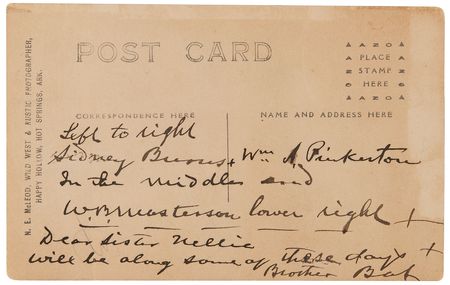 POST CARD
AZO
PLACE
STAMP
HERE
AZO
N. E. McLEOD, WILD WEST & RUSTIC PHOTOGRAPHER,
HAPPY HOLLOW, HOT SPRINGS, ARK.
CORRESPONDENCE HERE
NAME AND ADDRESS HERE
Left to right
Sidney Burns + Wm A Pinkerton
In the middle and
W.B. Masterson lower right +
Dear Sister Nellie
Will be along some of these days +
Brother Bat